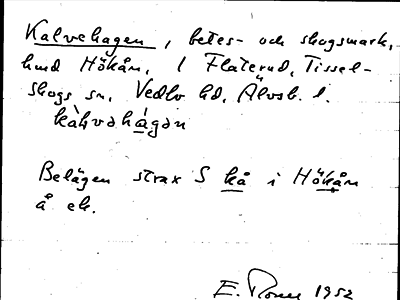 Kalvehagen, betes- och skogsmark,
hmd Hökån, 1 Flaterud, Tissel-
skogs sn, Vedbo hd, Älvsb. l.
kàlvəhágən
Belägen strax S kå i Hökån
å ek.
E. 1952